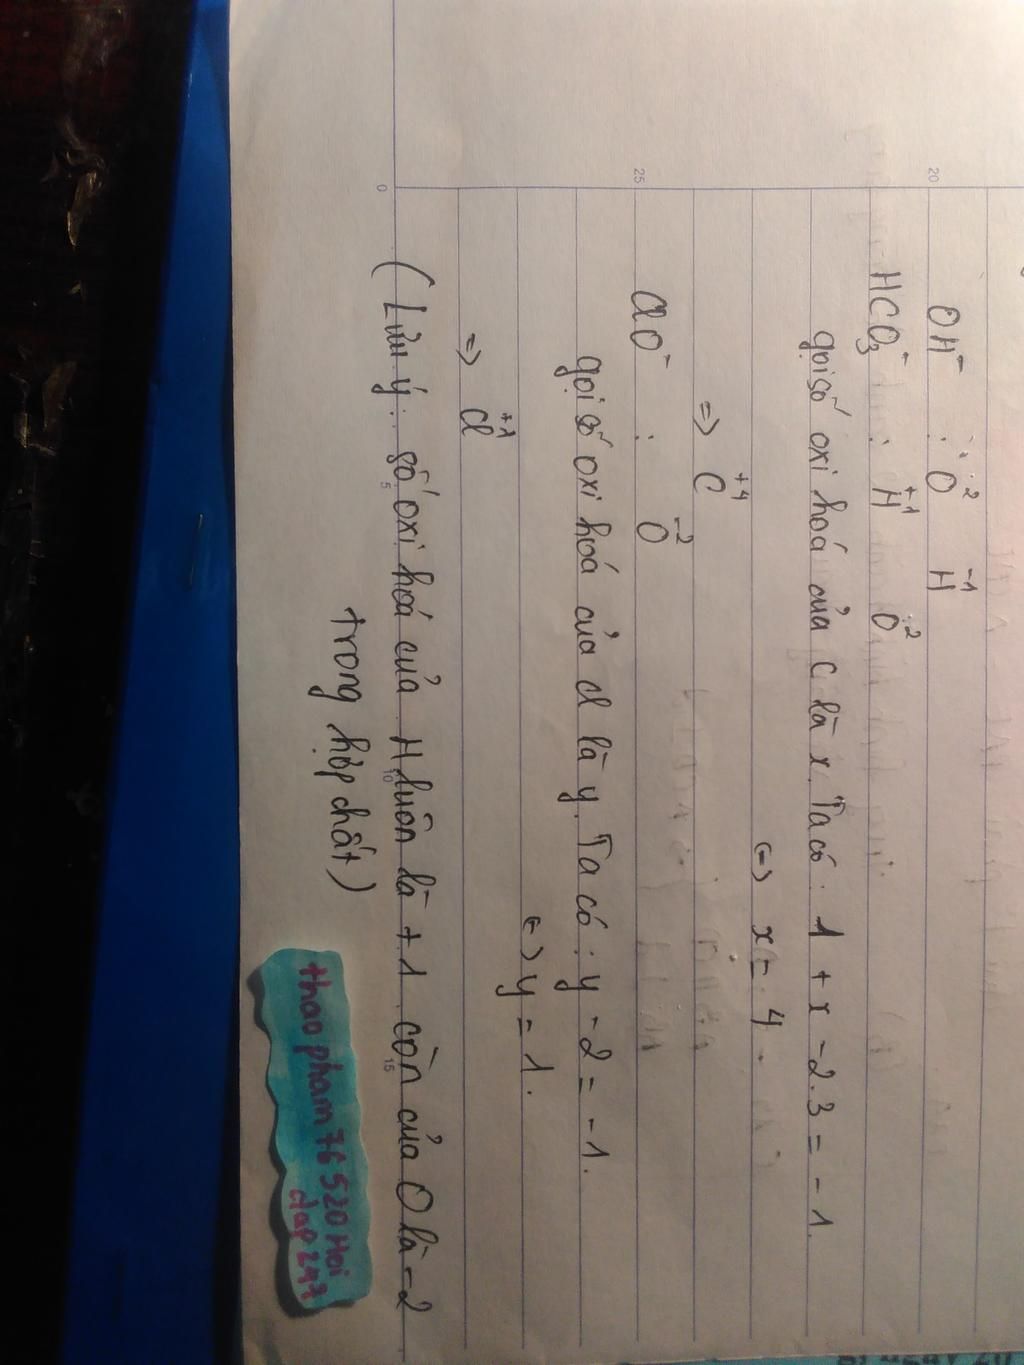 OH⁻ : O⁻² H⁻¹
HCO₃⁻ : H⁺¹ O⁻²
gọi số oxi hoá của C là x. Ta có: 1 + x - 2.3 = -1.
(=) x = 4.
=) C⁺⁴
ClO⁻ : O⁻²
gọi số oxi hoá của Cl là y. Ta có: y - 2 = -1.
(=) y = 1.
=) Cl⁺¹
(Lưu ý: số oxi hoá của H luôn là +1 còn của O là -2
trong hợp chất)
thao pham 76 520 Hoi
dap 247
20
25
0
5
10
15